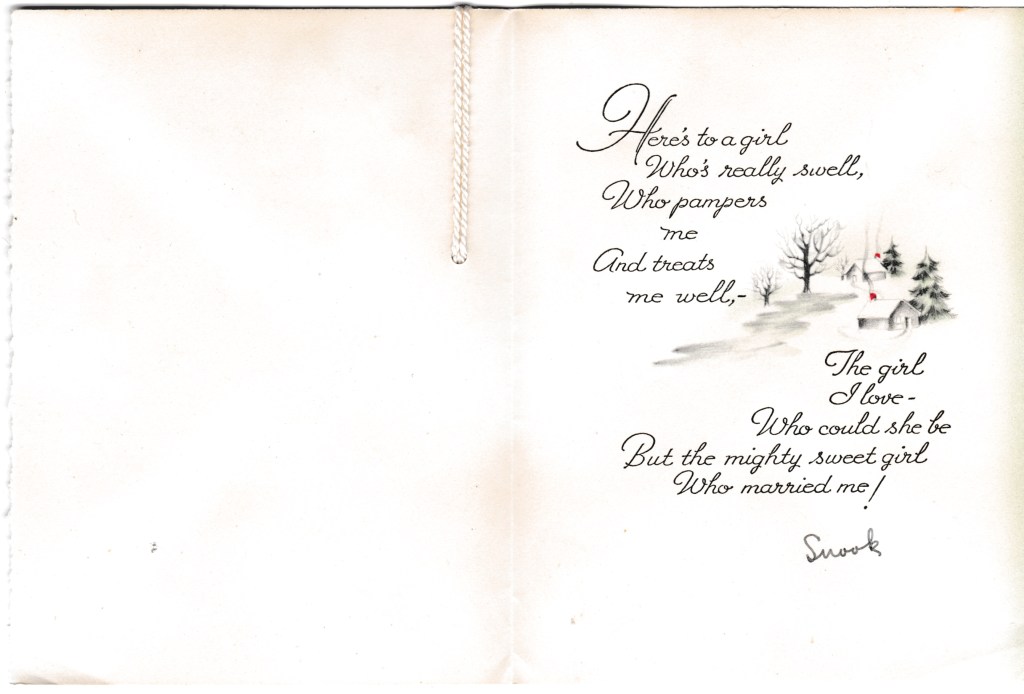 Here's to a girl
Who's really swell,
Who pampers
me
And treats
me well,-
The girl
I love-
Who could she be
But the mighty sweet girl
Who married me!
Snook